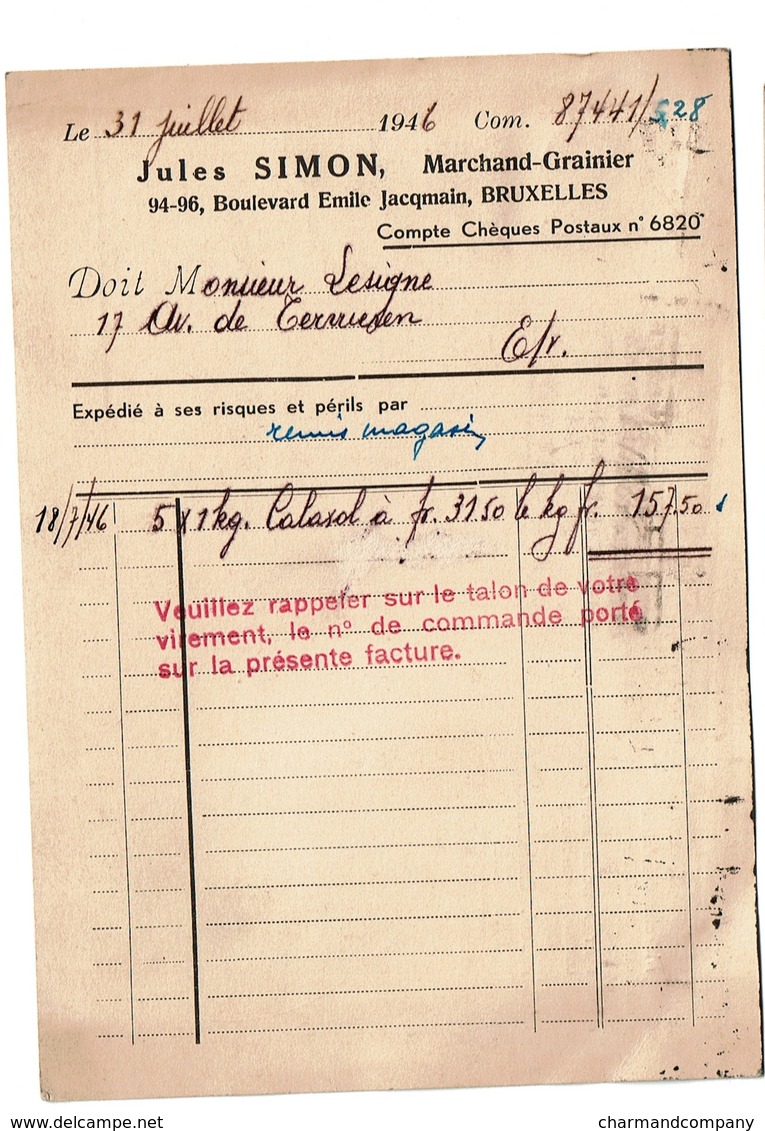 Le 31 juillet 1946 Com. 87441/528
Jules SIMON, Marchand-Grainier
94-96, Boulevard Emile Jacqmain, BRUXELLES
Compte Chèques Postaux n° 6820
Doit Monsieur Lesigne
17 Av. de Tervueren
E/v.
Expédié à ses risques et périls par
remis magasin
18/7/46 5 x 1 kg. Calaxol à fr. 31.50 le kg fr. 157.50
Veuillez rappeler sur le talon de votre
virement, le n° de commande porté
sur la présente facture.
charmandcompany